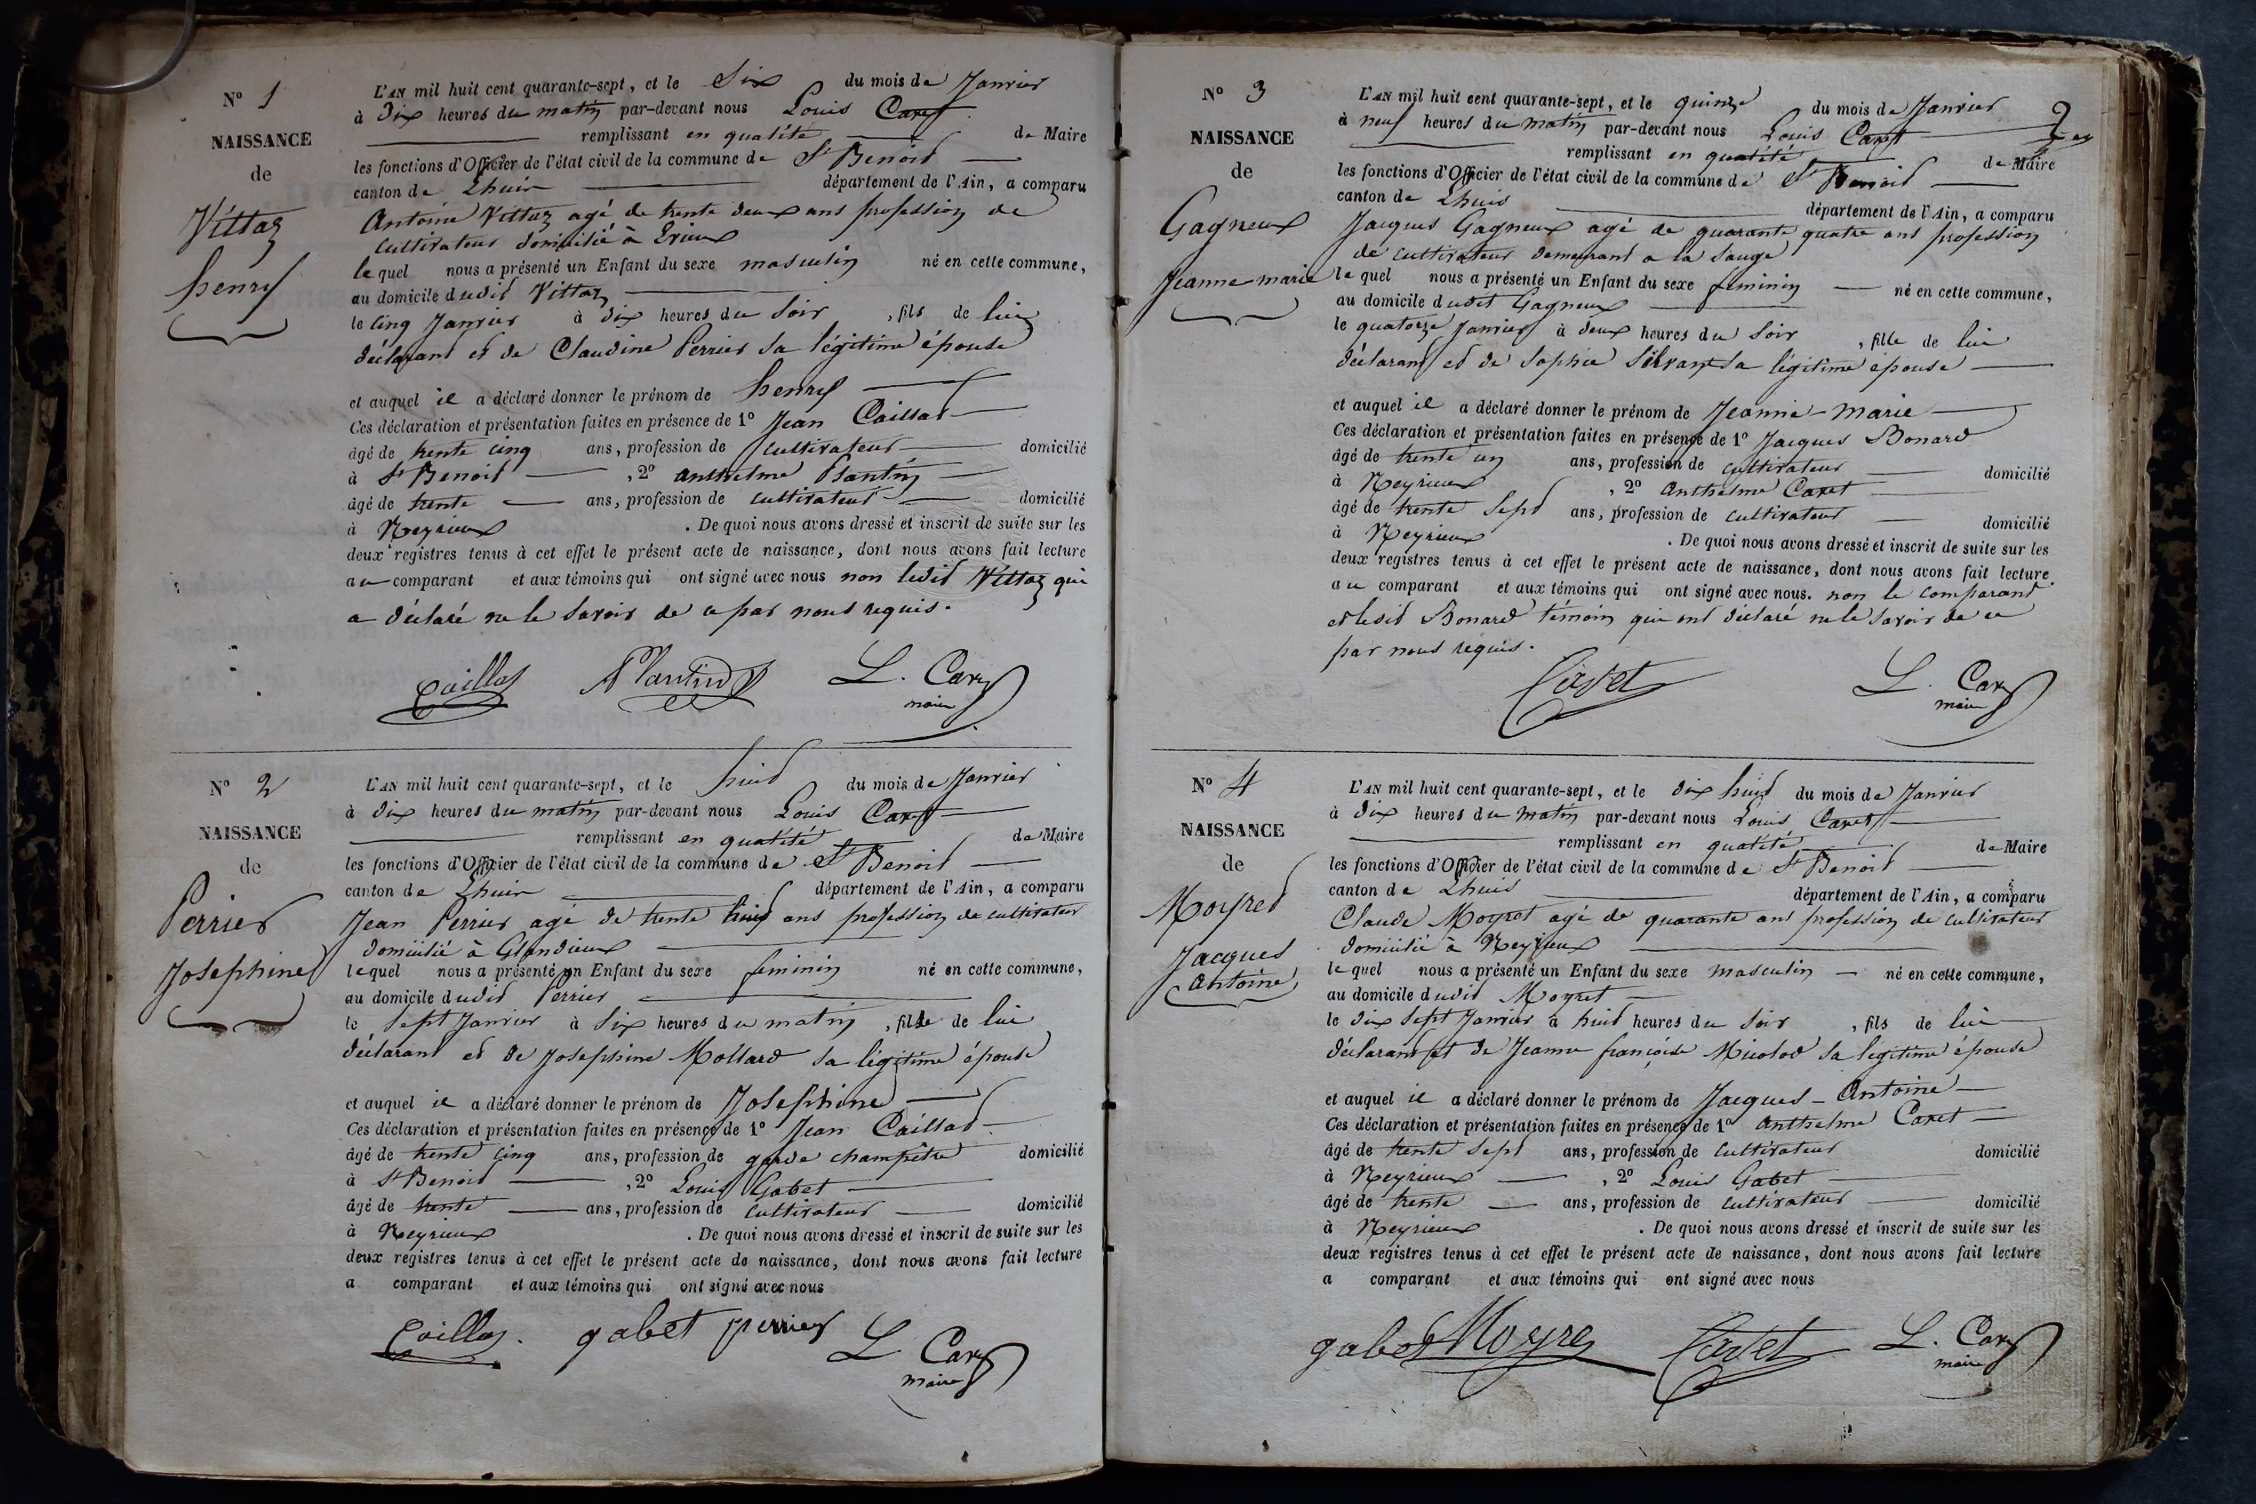 N° 1
NAISSANCE
de
Vittoz
henry
L'AN mil huit cent quarante-sept, et le Six du mois de Janvier
à dix heures du matin par-devant nous Louis Caret
remplissant en qualité de Maire
les fonctions d'Officier de l'état civil de la commune de St Benoit
canton de Lhuis département de l'Ain, a comparu
Antoine Vittoz agé de trente deux ans profession de
cultivateur domicilié à
lequel nous a présenté un Enfant du sexe masculin né en cette commune,
au domicile dudit Vittoz
le cinq Janvier à dix heures du Soir, fils de lui
déclarant et de Claudine Perrier sa légitime épouse
et auquel il a déclaré donner le prénom de henry
Ces déclaration et présentation faites en présence de 1° Jean Caillat
âgé de trente cinq ans, profession de cultivateur domicilié
à St Benoit, 2° anthelme Plantin
âgé de trente ans, profession de cultivateur domicilié
à Neyrieux. De quoi nous avons dressé et inscrit de suite sur les
deux registres tenus à cet effet le présent acte de naissance, dont nous avons fait lecture
au comparant et aux témoins qui ont signé avec nous non ledit Vittoz qui
a déclaré ne le savoir de ce par nous requis.
Caillat Plantin L. Caret
maire
N° 2
NAISSANCE
de
Perrier
Josephine
L'AN mil huit cent quarante-sept, et le huit du mois de Janvier
à dix heures du matin par-devant nous Louis Caret
remplissant en qualité de Maire
les fonctions d'Officier de l'état civil de la commune de St Benoit
canton de Lhuis département de l'Ain, a comparu
Jean Perrier agé de trente huit ans profession de cultivateur
domicilié à Glandieux
lequel nous a présenté un Enfant du sexe feminin né en cette commune,
au domicile dudit Perrier
le Sept Janvier à Six heures du matin, fille de lui
déclarant et de Josephine Mollard sa légitime épouse
et auquel il a déclaré donner le prénom de Josephine
Ces déclaration et présentation faites en présence de 1° Jean Caillat
âgé de trente cinq ans, profession de garde champêtre domicilié
à St Benoit, 2° Louis Gabet
âgé de trente ans, profession de cultivateur domicilié
à Neyrieux. De quoi nous avons dressé et inscrit de suite sur les
deux registres tenus à cet effet le présent acte de naissance, dont nous avons fait lecture
a comparant et aux témoins qui ont signé avec nous
Caillat. gabet perrier L. Caret
maire
N° 3
NAISSANCE
de
Gagneux
Jeanne marie
L'AN mil huit cent quarante-sept, et le quinze du mois de Janvier
à neuf heures du matin par-devant nous Louis Caret
remplissant en qualité de Maire
les fonctions d'Officier de l'état civil de la commune de St Benoit
canton de Lhuis département de l'Ain, a comparu
Jacques Gagneux agé de quarante quatre ans profession
de cultivateur demeurant a la Sauge
lequel nous a présenté un Enfant du sexe feminin né en cette commune,
au domicile dudit Gagneux
le quatorze Janvier à deux heures du Soir, fille de lui
déclarant et de Sophie sa légitime épouse
et auquel il a déclaré donner le prénom de Jeanne-marie
Ces déclaration et présentation faites en présence de 1° Jacques Bonard
âgé de trente un ans, profession de cultivateur domicilié
à Neyrieux, 2° Anthelme Caret
âgé de trente Sept ans, profession de cultivateur domicilié
à Neyrieux. De quoi nous avons dressé et inscrit de suite sur les
deux registres tenus à cet effet le présent acte de naissance, dont nous avons fait lecture
au comparant et aux témoins qui ont signé avec nous. non le comparant
et ledit Bonard témoin qui ont déclaré ne le savoir de ce
par nous requis.
Caret L. Caret
maire
N° 4
NAISSANCE
de
Moyret
Jacques
Antoine
L'AN mil huit cent quarante-sept, et le dix huit du mois de Janvier
à dix heures du matin par-devant nous Louis Caret
remplissant en qualité de Maire
les fonctions d'Officier de l'état civil de la commune de St Benoit
canton de Lhuis département de l'Ain, a comparu
Claude Moyret agé de quarante ans profession de cultivateur
domicilié à Neyrieux
lequel nous a présenté un Enfant du sexe masculin né en cette commune,
au domicile dudit Moyret
le dix Sept Janvier à huit heures du Soir, fils de lui
déclarant et de Jeanne françoise Micolod sa légitime épouse
et auquel il a déclaré donner le prénom de Jacques-Antoine
Ces déclaration et présentation faites en présence de 1° Anthelme Caret
âgé de trente Sept ans, profession de cultivateur domicilié
à Neyrieux, 2° Louis Gabet
âgé de trente ans, profession de cultivateur domicilié
à Neyrieux. De quoi nous avons dressé et inscrit de suite sur les
deux registres tenus à cet effet le présent acte de naissance, dont nous avons fait lecture
a comparant et aux témoins qui ont signé avec nous
gabet Moyret Caret L. Caret
maire